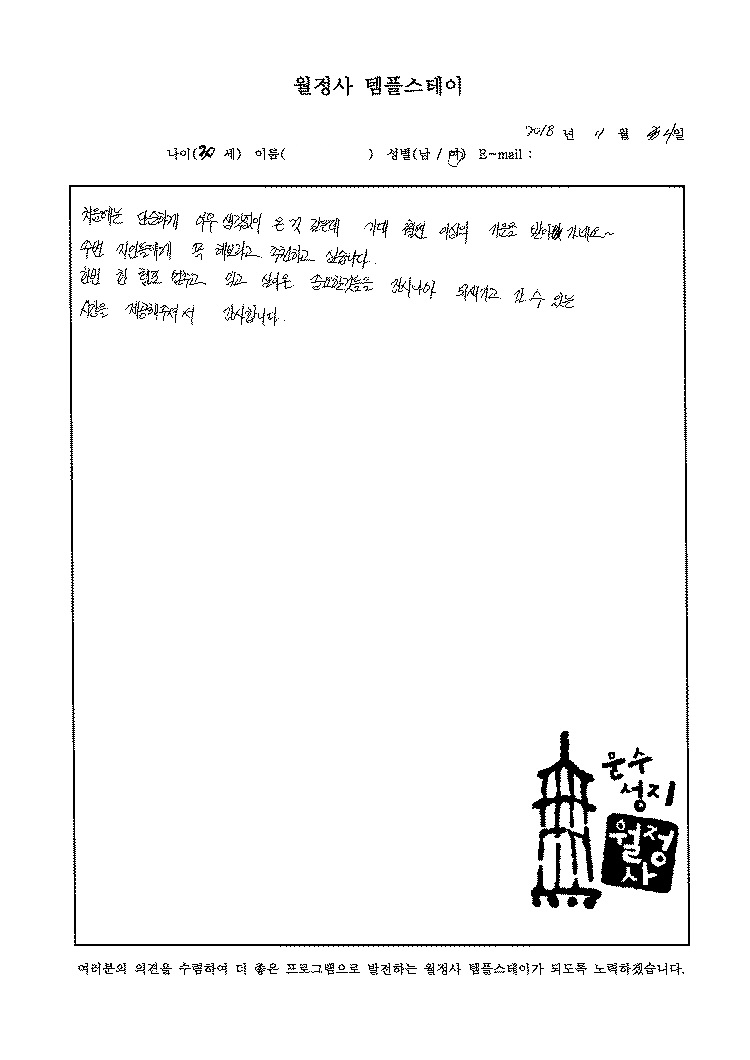 월정사 템플스테이
2018 년 11 월 24일
나이(30 세) 이름( ) 성별(남 / 여) E-mail :
처음에는 단순하게 아무 생각없이 온 것 같은데 기대 훨씬 이상의 기운을 받아 가네요~
주변 지인들에게 꼭 해보라고 추천하고 싶습니다.
한번 한 템포 멈추고 잊고 살아온 중요한것들을 잠시나마 되새기고 갈 수 있는
시간을 제공해주셔서 감사합니다.
문수
성지
월정
사
여러분의 의견을 수렴하여 더 좋은 프로그램으로 발전하는 월정사 템플스테이가 되도록 노력하겠습니다.